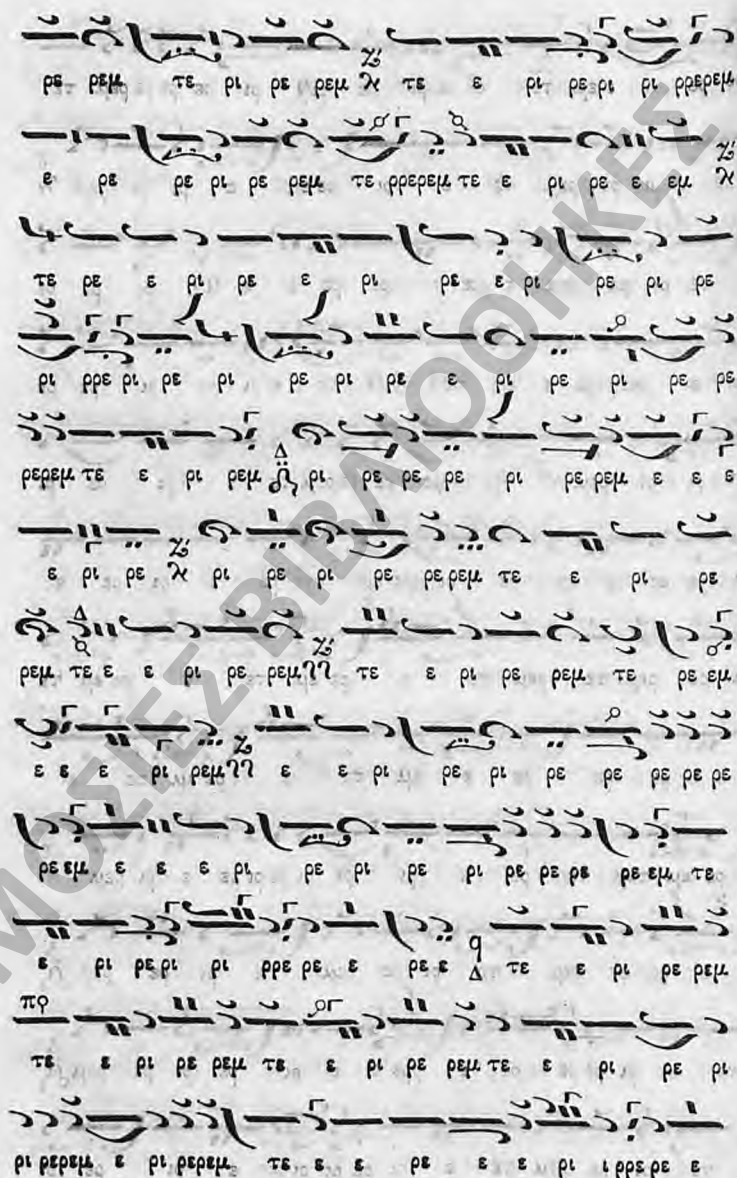 ρε ρεμ τε ρι ρε ρεμ τε ε ρι ρερι ρι ρρερεμ
ε ρε ρε ρι ρε ρεμ τε ρρερεμ τε ε ρι ρε ε εμ
τε ρε ε ρι ρε ε ρι ρε ε ρι ρε ρι ρε
ρι ρρε ρι ρε ρι ρε ρι ρε ε ρι ρε ρι ρε ρε
ρερεμ τε ε ρι ρεμ Δι ρι ρε ρε ρε ρι ρε ρεμ ε ε ε
ε ρι ρε ρι ρε ρι ρε ρε ρεμ τε ε ρι ρε
ρεμ τε ε ε ρι ρε ρεμ τε ε ρι ρε ρεμ τε ρε εμ
ε ε ε ρι ρεμ ε ε ρι ρε ρι ρε ρε ρε ρε ρε
ρε εμ ε ε ε ρι ρε ρι ρε ρι ρε ρε ρε ρε εμ τε
ε ρι ρε ρι ρι ρρε ρε ε ρε ε τε ε ρι ρε ρεμ
τε ε ρι ρε ρεμ τε ε ρι ρε ρεμ τε ε ρι ρε ρι
ρι ρερεμ ε ρι ρερεμ τε ε ε ρε ε ε ρι ι ρρε ρε ε
ΜΟΣΙΕΣ ΒΙΒΛΙΟΘΗΚΕΣ